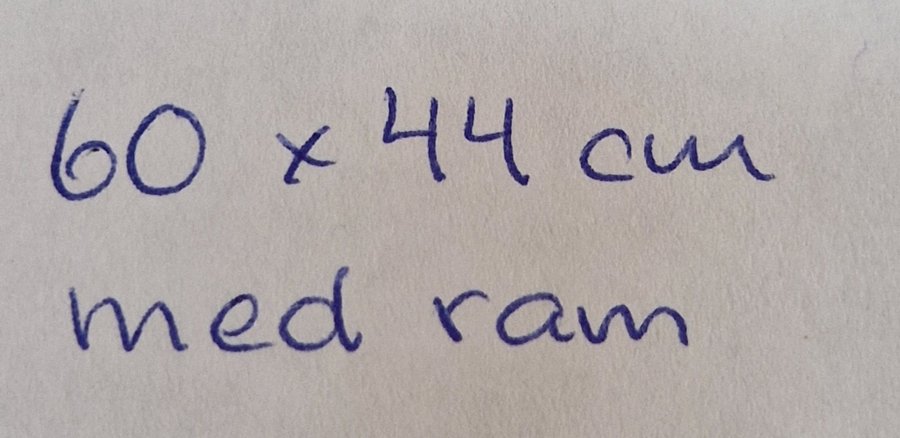 60 x 44 cm
med ram